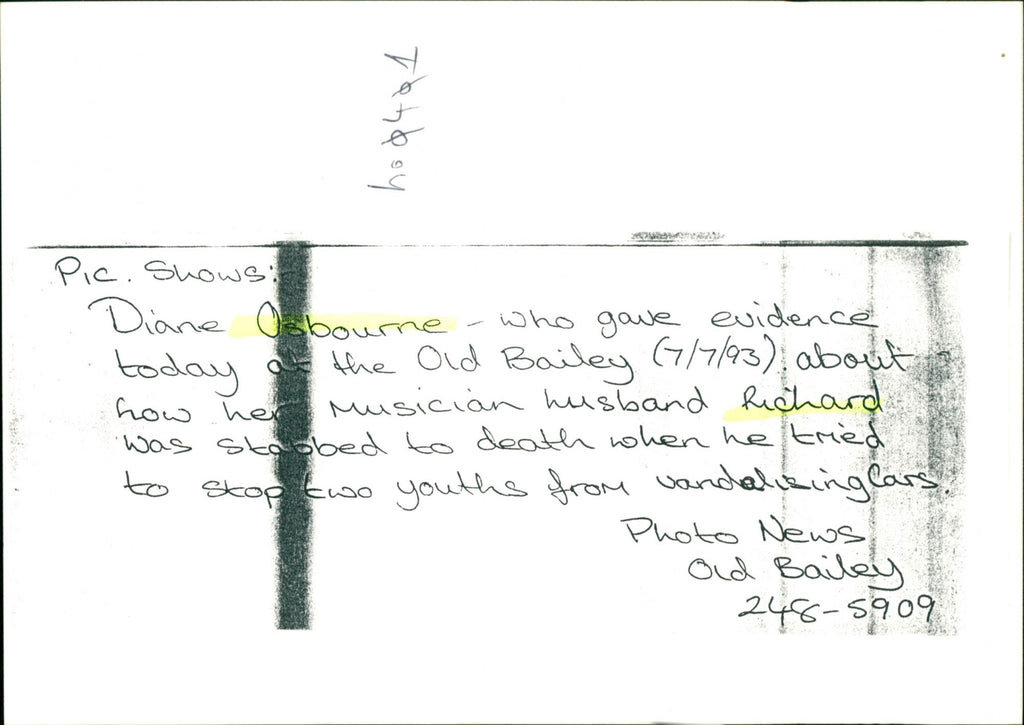 Pic. Shows:-
Diane Osbourne - who gave evidence
today at the Old Bailey (7/7/93). about
how her Musician husband Richard
was stabbed to death when he tried
to stop two youths from vandalising Cars.
Photo News
Old Bailey
248-5909